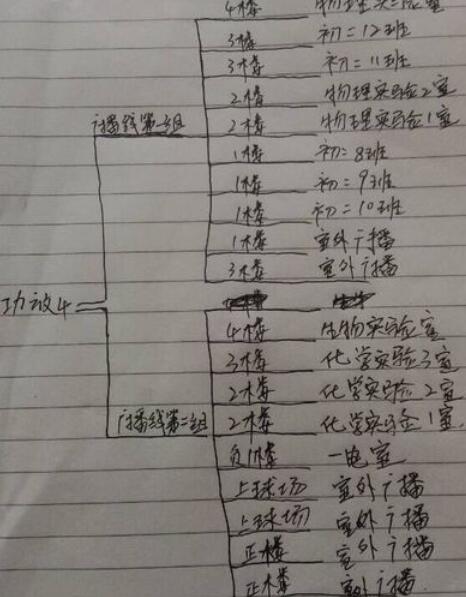 4楼 物理实验3室
3楼 初二12班
3楼 初二11班
2楼 物理实验2室
广播线第一组
2楼 物理实验1室
1楼 初二8班
1楼 初二9班
1楼 初二10班
1楼 室外广播
3楼 室外广播
功放4
4楼 生物实验室
3楼 化学实验3室
2楼 化学实验2室
广播线第二组
2楼 化学实验1室
负1楼 一电室
上球场 室外广播
上球场 室外广播
正楼 室外广播
正楼 室外广播